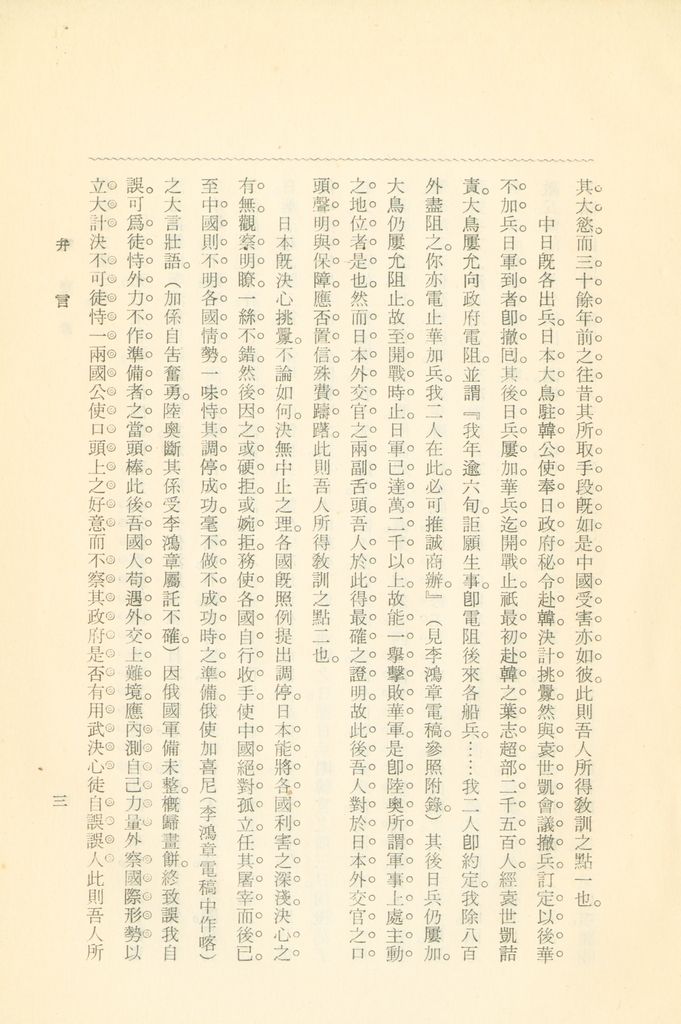 其大慾。而三十餘年前之往昔。其所取手段旣如是。中國受害亦如彼。此則吾人所得敎訓之點一也。
中日旣各出兵。日本大鳥駐韓公使奉日政府秘令赴韓決計挑釁。然與袁世凱會議撤兵訂定以後華
不加兵。日軍到者卽撤回。其後日兵屢加。華兵迄開戰止。祇最初赴韓之葉志超部二千五百人。經袁世凱詰
責。大鳥屢允向政府電阻。並謂『我年逾六旬。詎願生事。卽電阻後來各船兵……我二人卽約定。我除八百
外盡阻之。你亦電止華加兵。我二人在此。必可推誠商辦。』（見李鴻章電稿。參照附錄。）其後日兵仍屢加。
大鳥仍屢允阻止。故至開戰時止。日軍已達萬二千以上。故能一擧擊敗華軍。是卽陸奥所謂軍事上處主動
之地位者是也。然而日本外交官之兩副舌頭。吾人於此得最確之證明。故此後吾人對於日本外交官之口
頭聲明與保障。應否置信。殊費躊躇。此則吾人所得敎訓之點二也。
日本旣決心挑釁。不論如何。決無中止之理。各國旣照例提出調停。日本能將各國利害之深淺。決心之
有無。觀察明瞭。一絲不錯。然後因之或硬拒或婉拒。務使各國自行收手。使中國絕對孤立。任其屠宰而後已。
至中國則不明各國情勢。一味恃其調停成功。毫不做不成功時之準備。俄使加喜尼（李鴻章電稿中作喀）
之大言壯語。（加係自告奮勇。陸奥斷其係受李鴻章屬託不確）因俄國軍備未整。槪歸畫餅。終致誤我自
誤。可爲徒恃外力不作準備者之當頭棒。此後吾國人苟遇外交上難境。應內測自己力量。外察國際形勢。以
立大計。決不可徒恃一兩國公使口頭上之好意。而不察其政府是否有用武決心。徒自誤誤人。此則吾人所
弁言
三